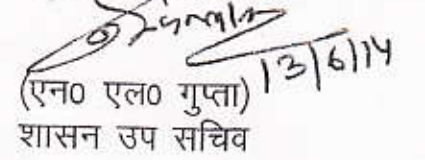 13/6/14
(एन0 एल0 गुप्ता)
शासन उप सचिव